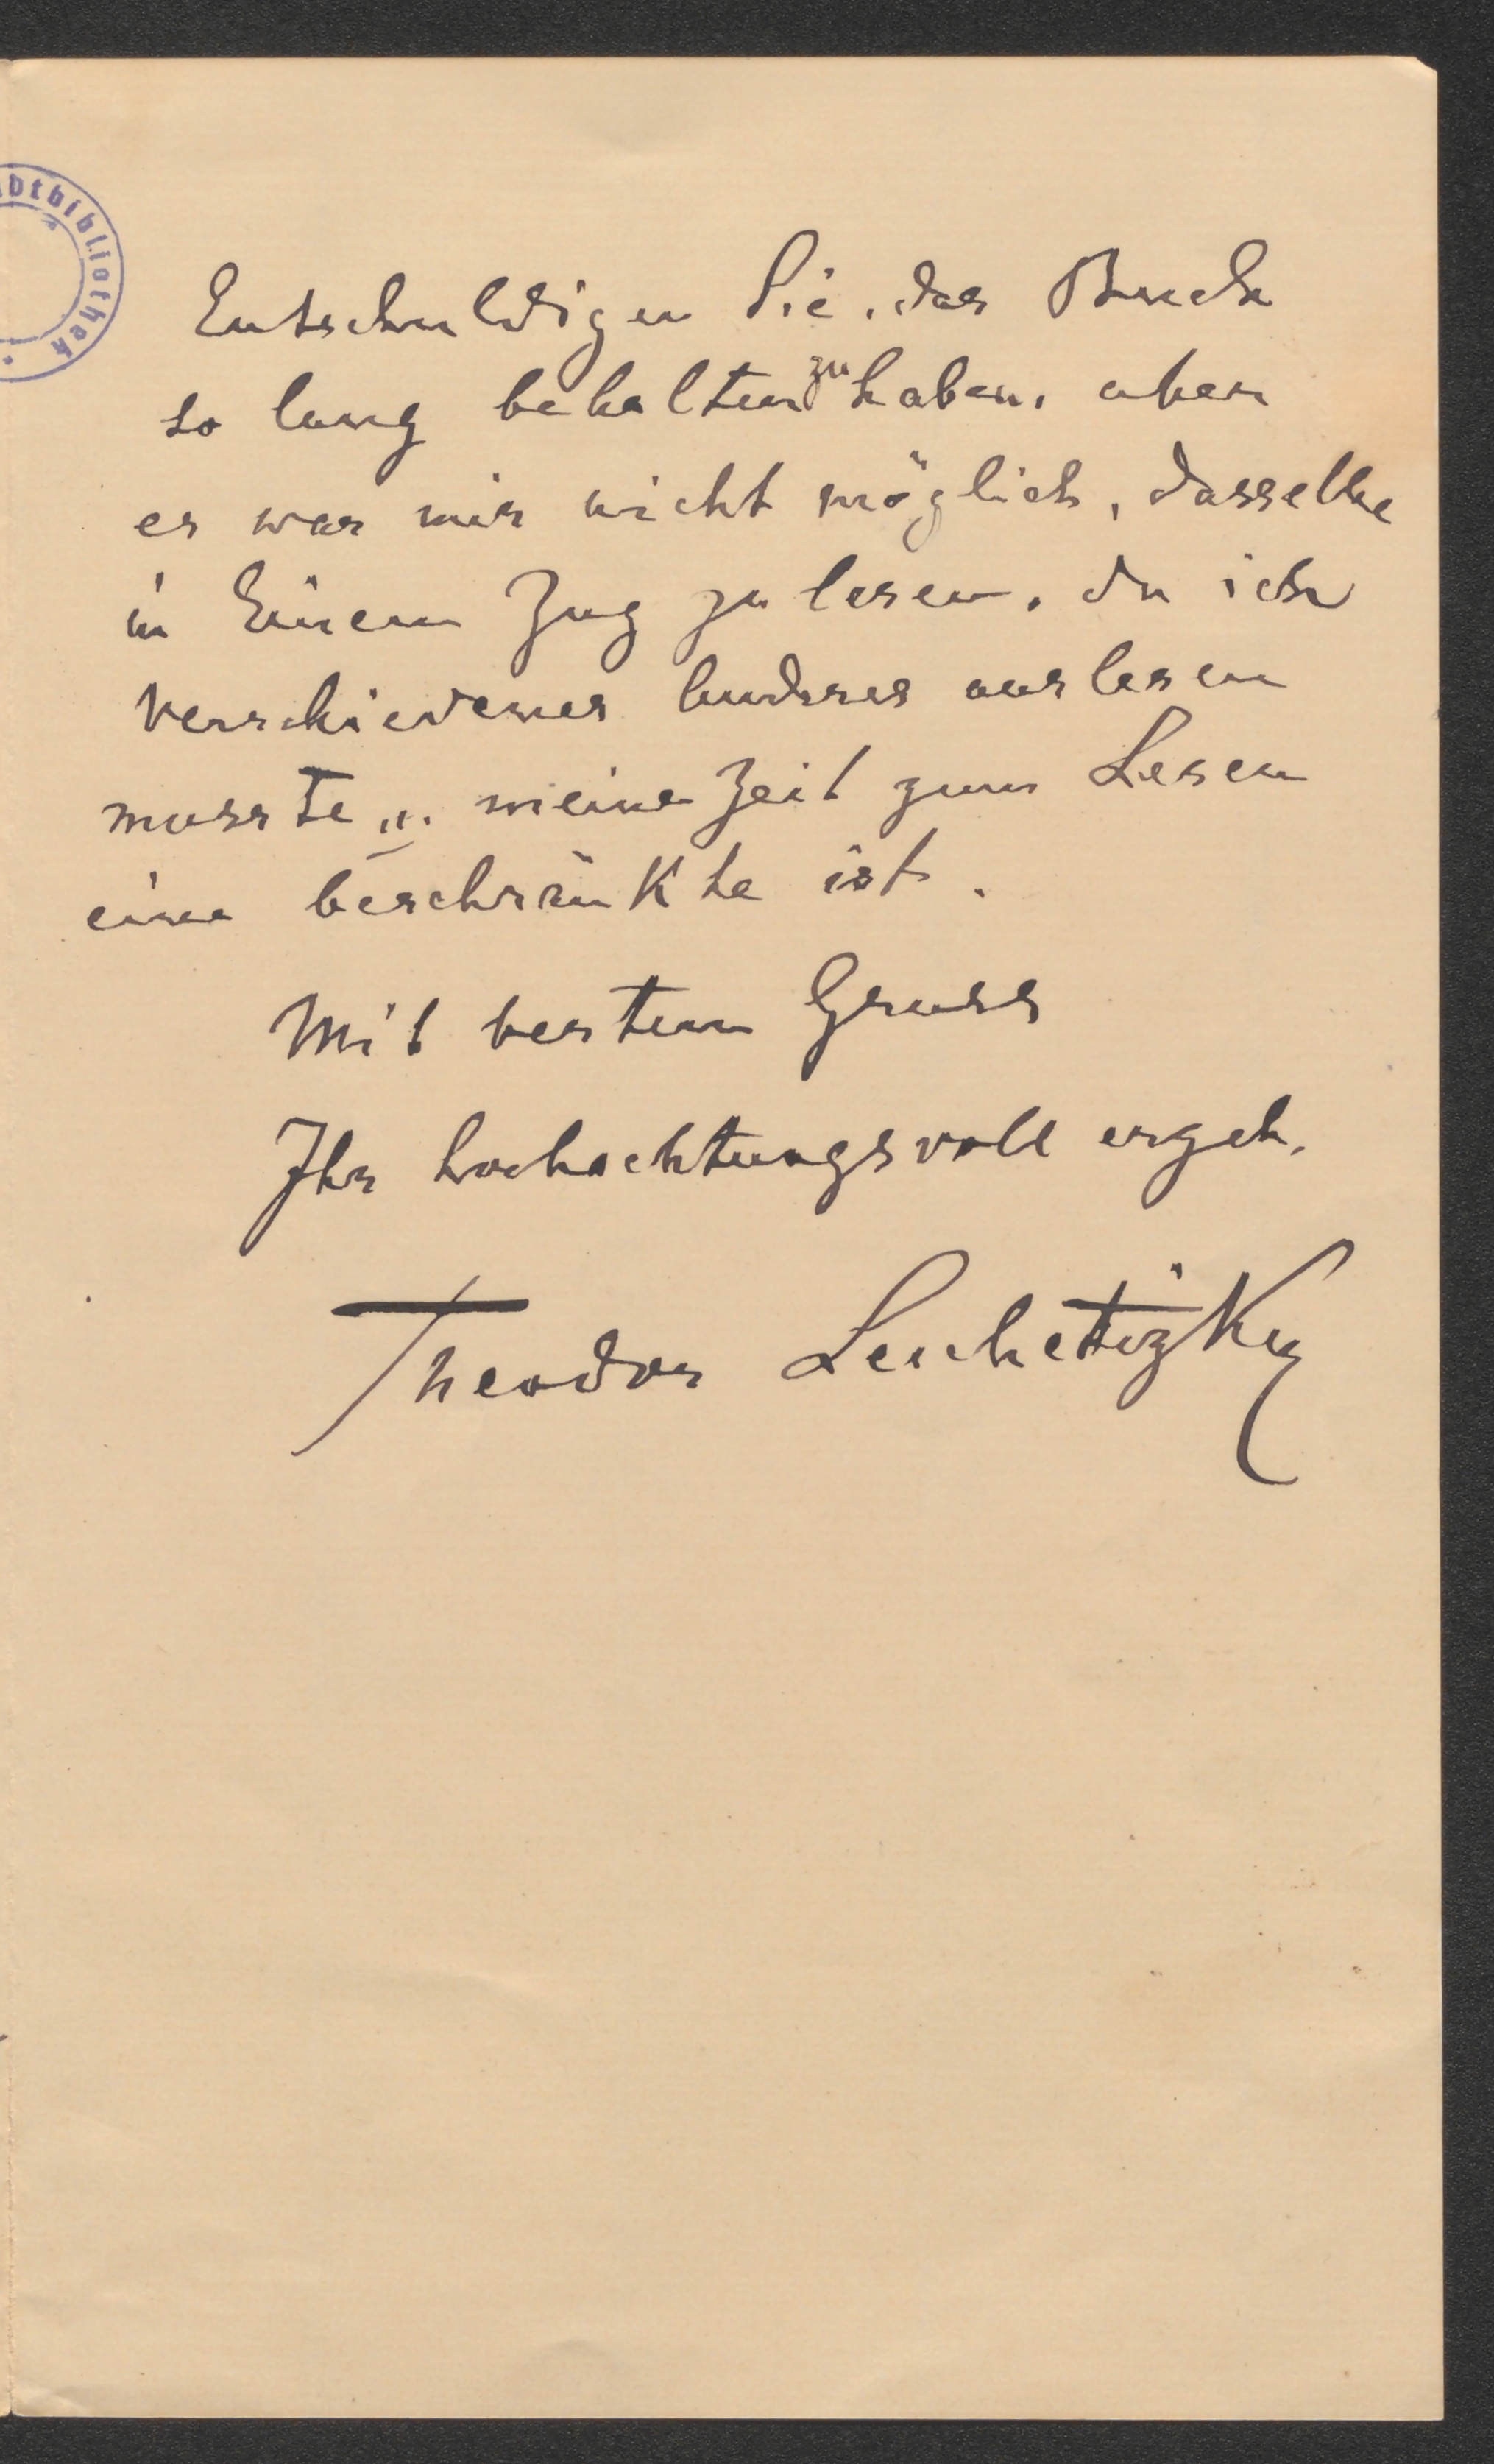 dtbibliothek.
Entschuldigen Sie, das Buch
so lang behalten zu haben, aber
es war mir nicht möglich, dasselbe
in Einem Zug zu lesen, da ich
verschiedenes Anderes auslesen
musste u. meine Zeit zum Lesen
eine beschränkte ist.
Mit bestem Gruss
Ihr hochachtungsvoll ergeb.
Theodor Leschetizky